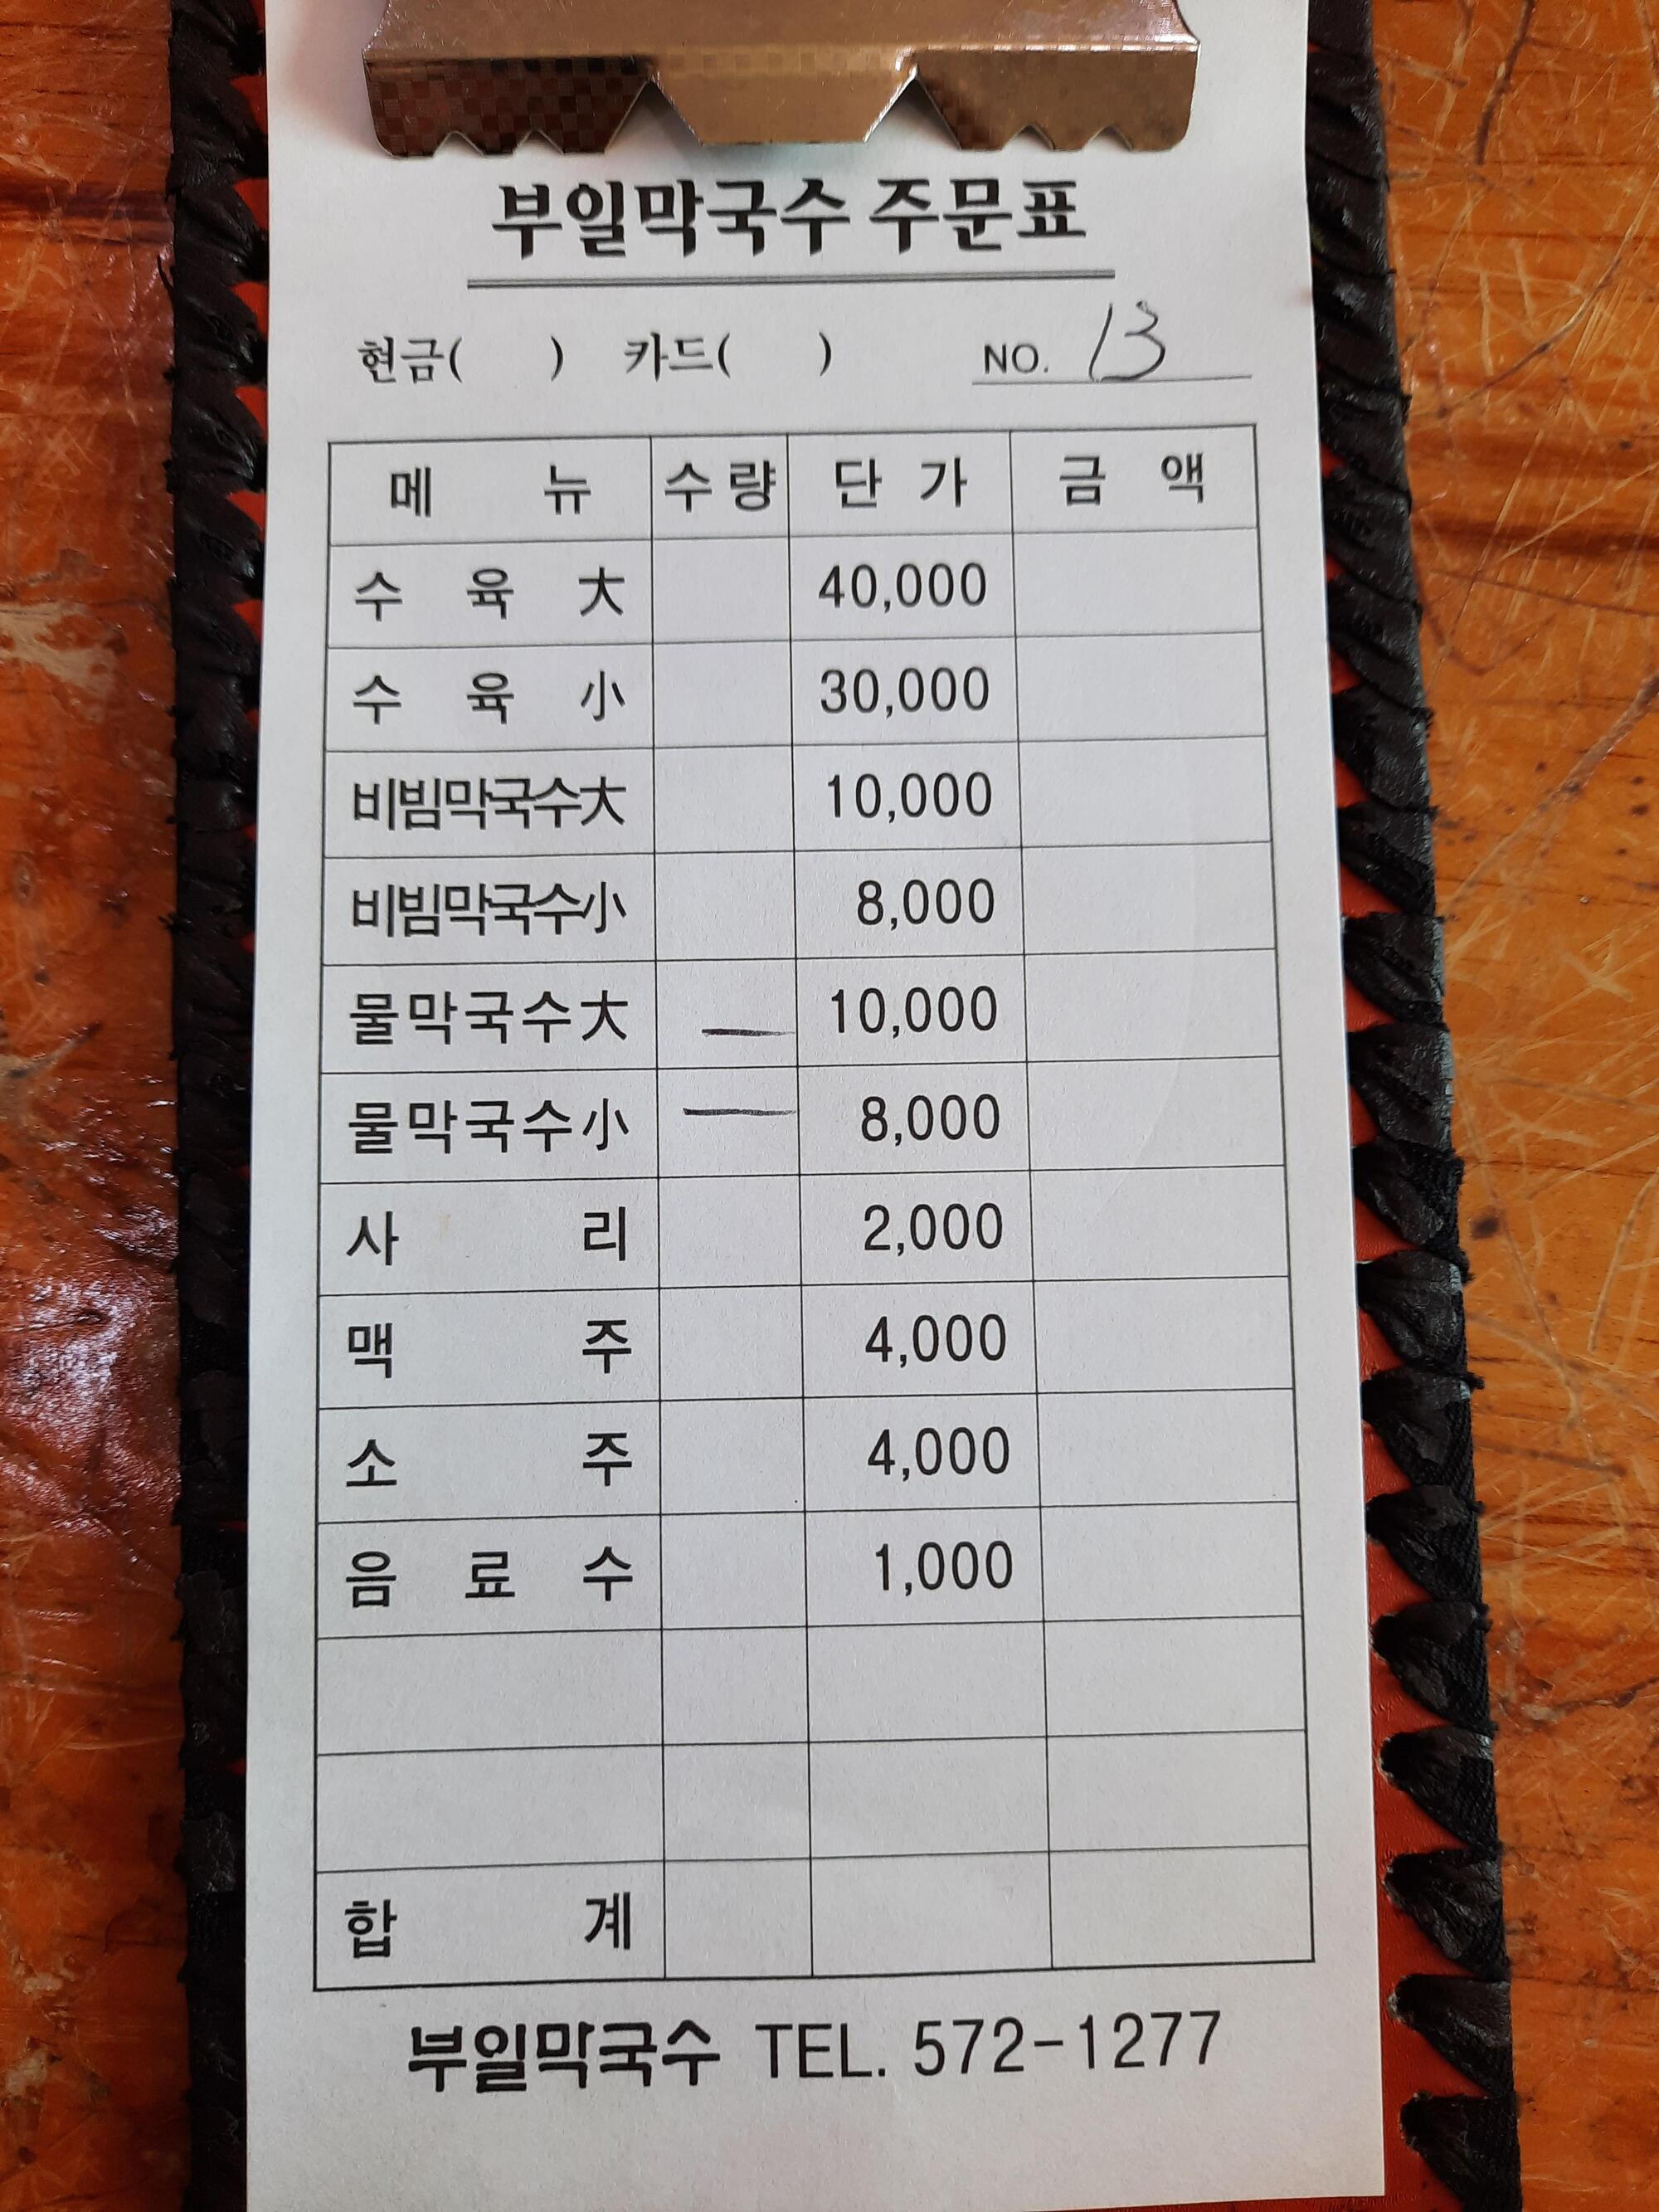 부일막국수 주문표
현금( ) 카드( ) NO. 13
메 뉴 수량 단 가 금 액
수 육 大 40,000
수 육 小 30,000
비빔막국수大 10,000
비빔막국수小 8,000
물막국수大 — 10,000
물막국수小 — 8,000
사 리 2,000
맥 주 4,000
소 주 4,000
음 료 수 1,000
합 계
부일막국수 TEL. 572-1277